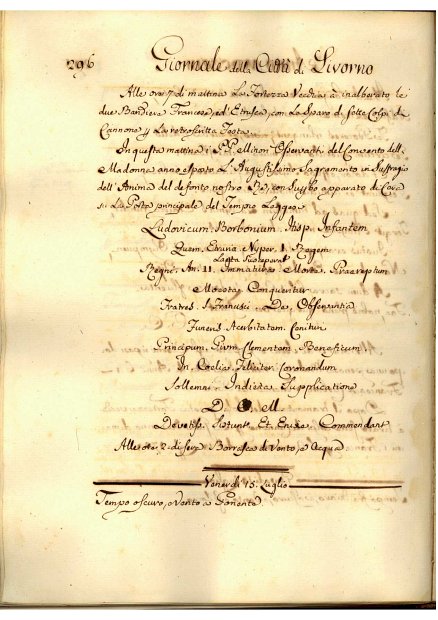 296 Giornale della Città di Livorno
Alle ore 7 di mattina La Fortezza Vecchia à inalberato le
due Bandiere Francese, ed Etrusca, con Lo Sparo di sette Colpi di
Cannone p La retroscritta Festa.
In questa mattina i PP. Minori Osservanti del Convento della
Madonna anno esposto L'Augustissimo Sagramento in Suffragio
dell'Anima del defonto nostro Rè, con
apparato di
La Porta principale del Tempio
Ludovicum. Borbonium. Hisp. Infantem
Quem. Etruria. Nuper. I. Regem
Laeta Susceperat
Regni. An. II. Immatura. Morte. Praereptum
Moesta. Conqueritur
Fratres. S. Francisci. De. Observantia
Funeris. Acerbitatem.
Principem. Pium. Clementem. Beneficum
In. Coelis. Feliciter. Coronandum
Sollemni. Indicta. Supplicatione
D. O. M.
Devotiss. Sistunt. Et. Enixe. Commendant
Alle ore 2 di sera Borrasca di Vento, e Acqua
Venerdì 15. Luglio
Tempo oscuro, e Vento a Ponente.